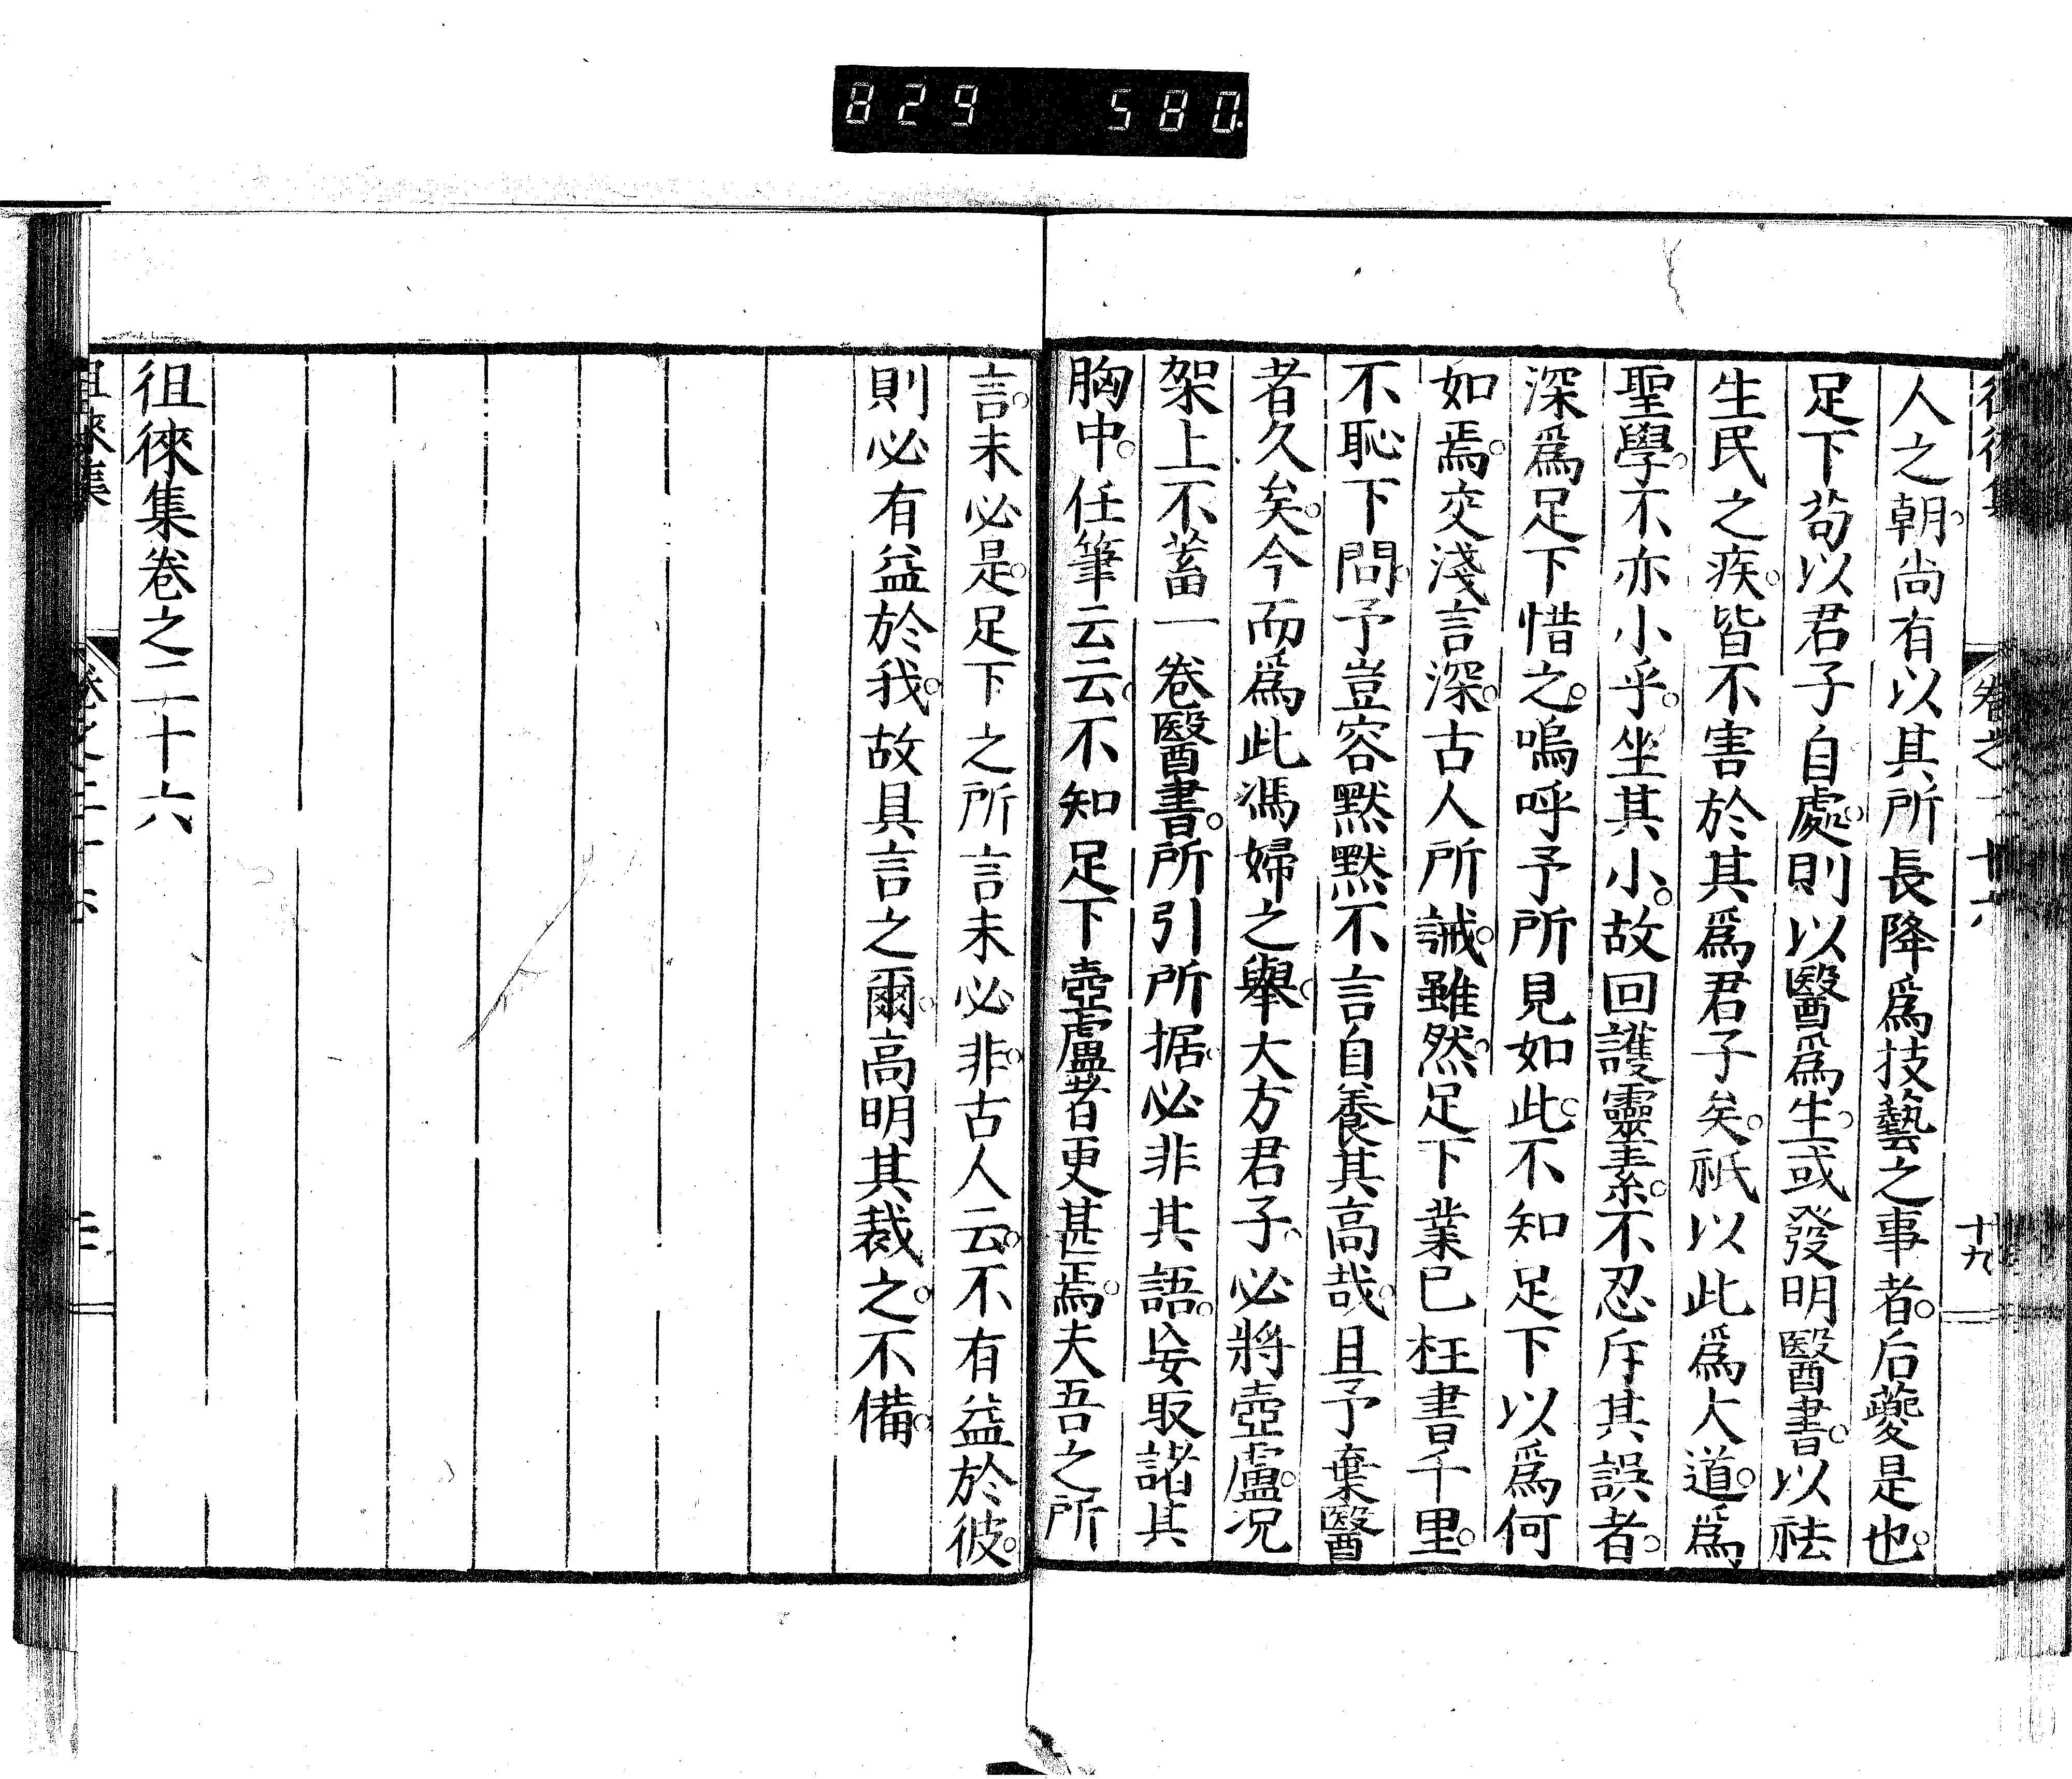 829 580
人之朝。尚有以其所長降爲技藝之事者。后夔是也。
足下苟以君子自處。則以醫爲生。或發明醫書。以祛
生民之疾。皆不害於其爲君子矣。祇以此爲大道。爲
聖學。不亦小乎。坐其小。故回護靈素。不忍斥其誤者。
深爲足下惜之。嗚呼予所見如此。不知足下以爲何
如焉。交淺言深。古人所誡。雖然。足下業已枉書千里。
不恥下問。予豈容默默不言自養其高哉。且予棄醫
者久矣。今而爲此馮婦之舉。大方君子。必將壺盧。况
架上不蓄一卷醫書。所引所据。必非其語。妄取諧其
胸中。任筆云云。不知足下壺盧者更甚焉。夫吾之所
言。未必是。足下之所言未必非。古人云。不有益於彼。
則必有益於我。故具言之爾。高明其裁之。不備。
徂徠集卷之二十六
十九